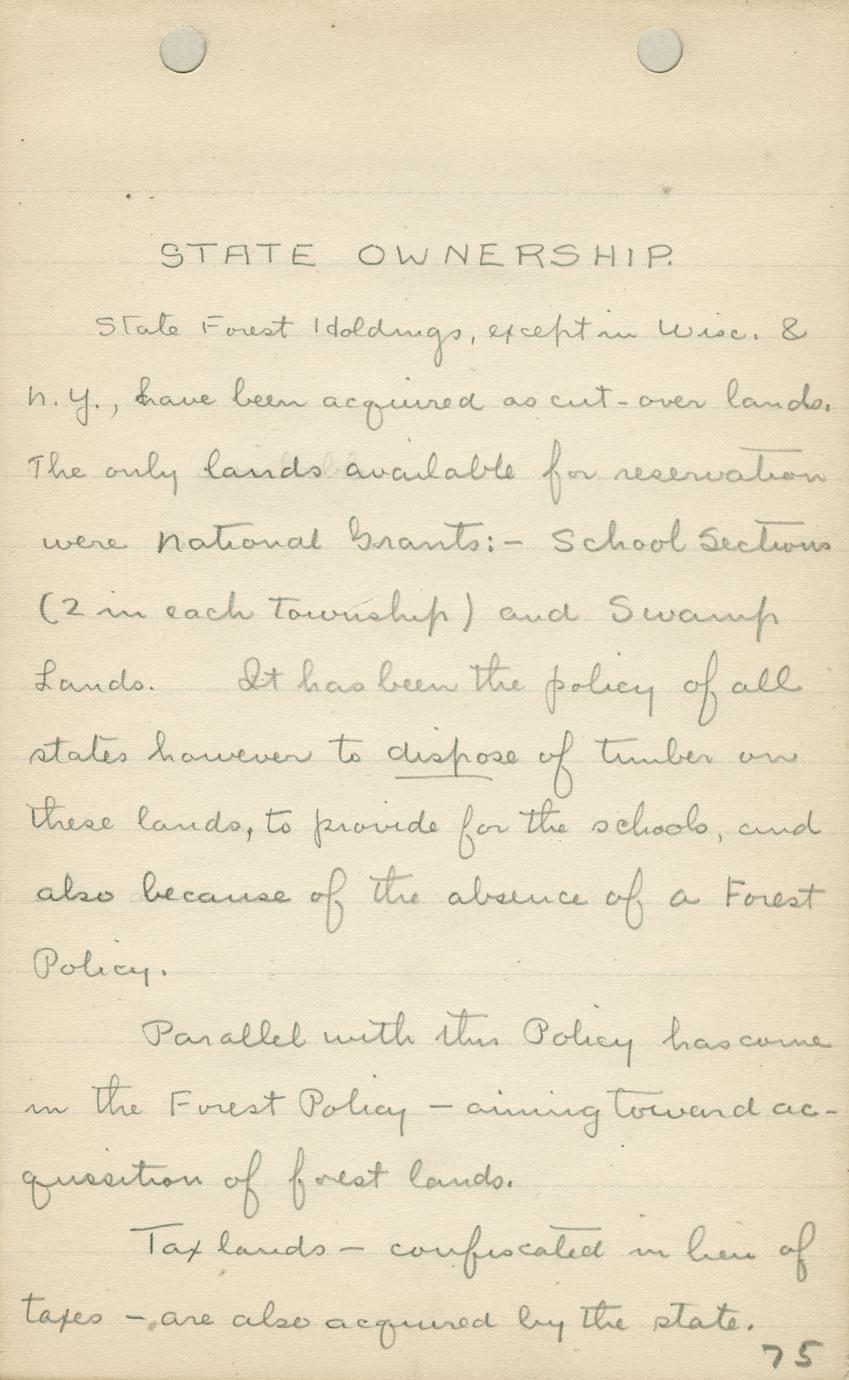 STATE OWNERSHIP.
State Forest Holdings, except in Wisc. &
N.Y., have been acquired as cut-over lands.
The only lands available for reservation
were National Grants:- School Sections
(2 in each township) and Swamp
Lands. It has been the policy of all
states however to dispose of timber on
these lands, to provide for the schools, and
also because of the absence of a Forest
Policy.
Parallel with this Policy has come
in the Forest Policy - aiming toward ac-
quisition of forest lands.
Tax lands - confiscated in lieu of
taxes - are also acquired by the state.
75